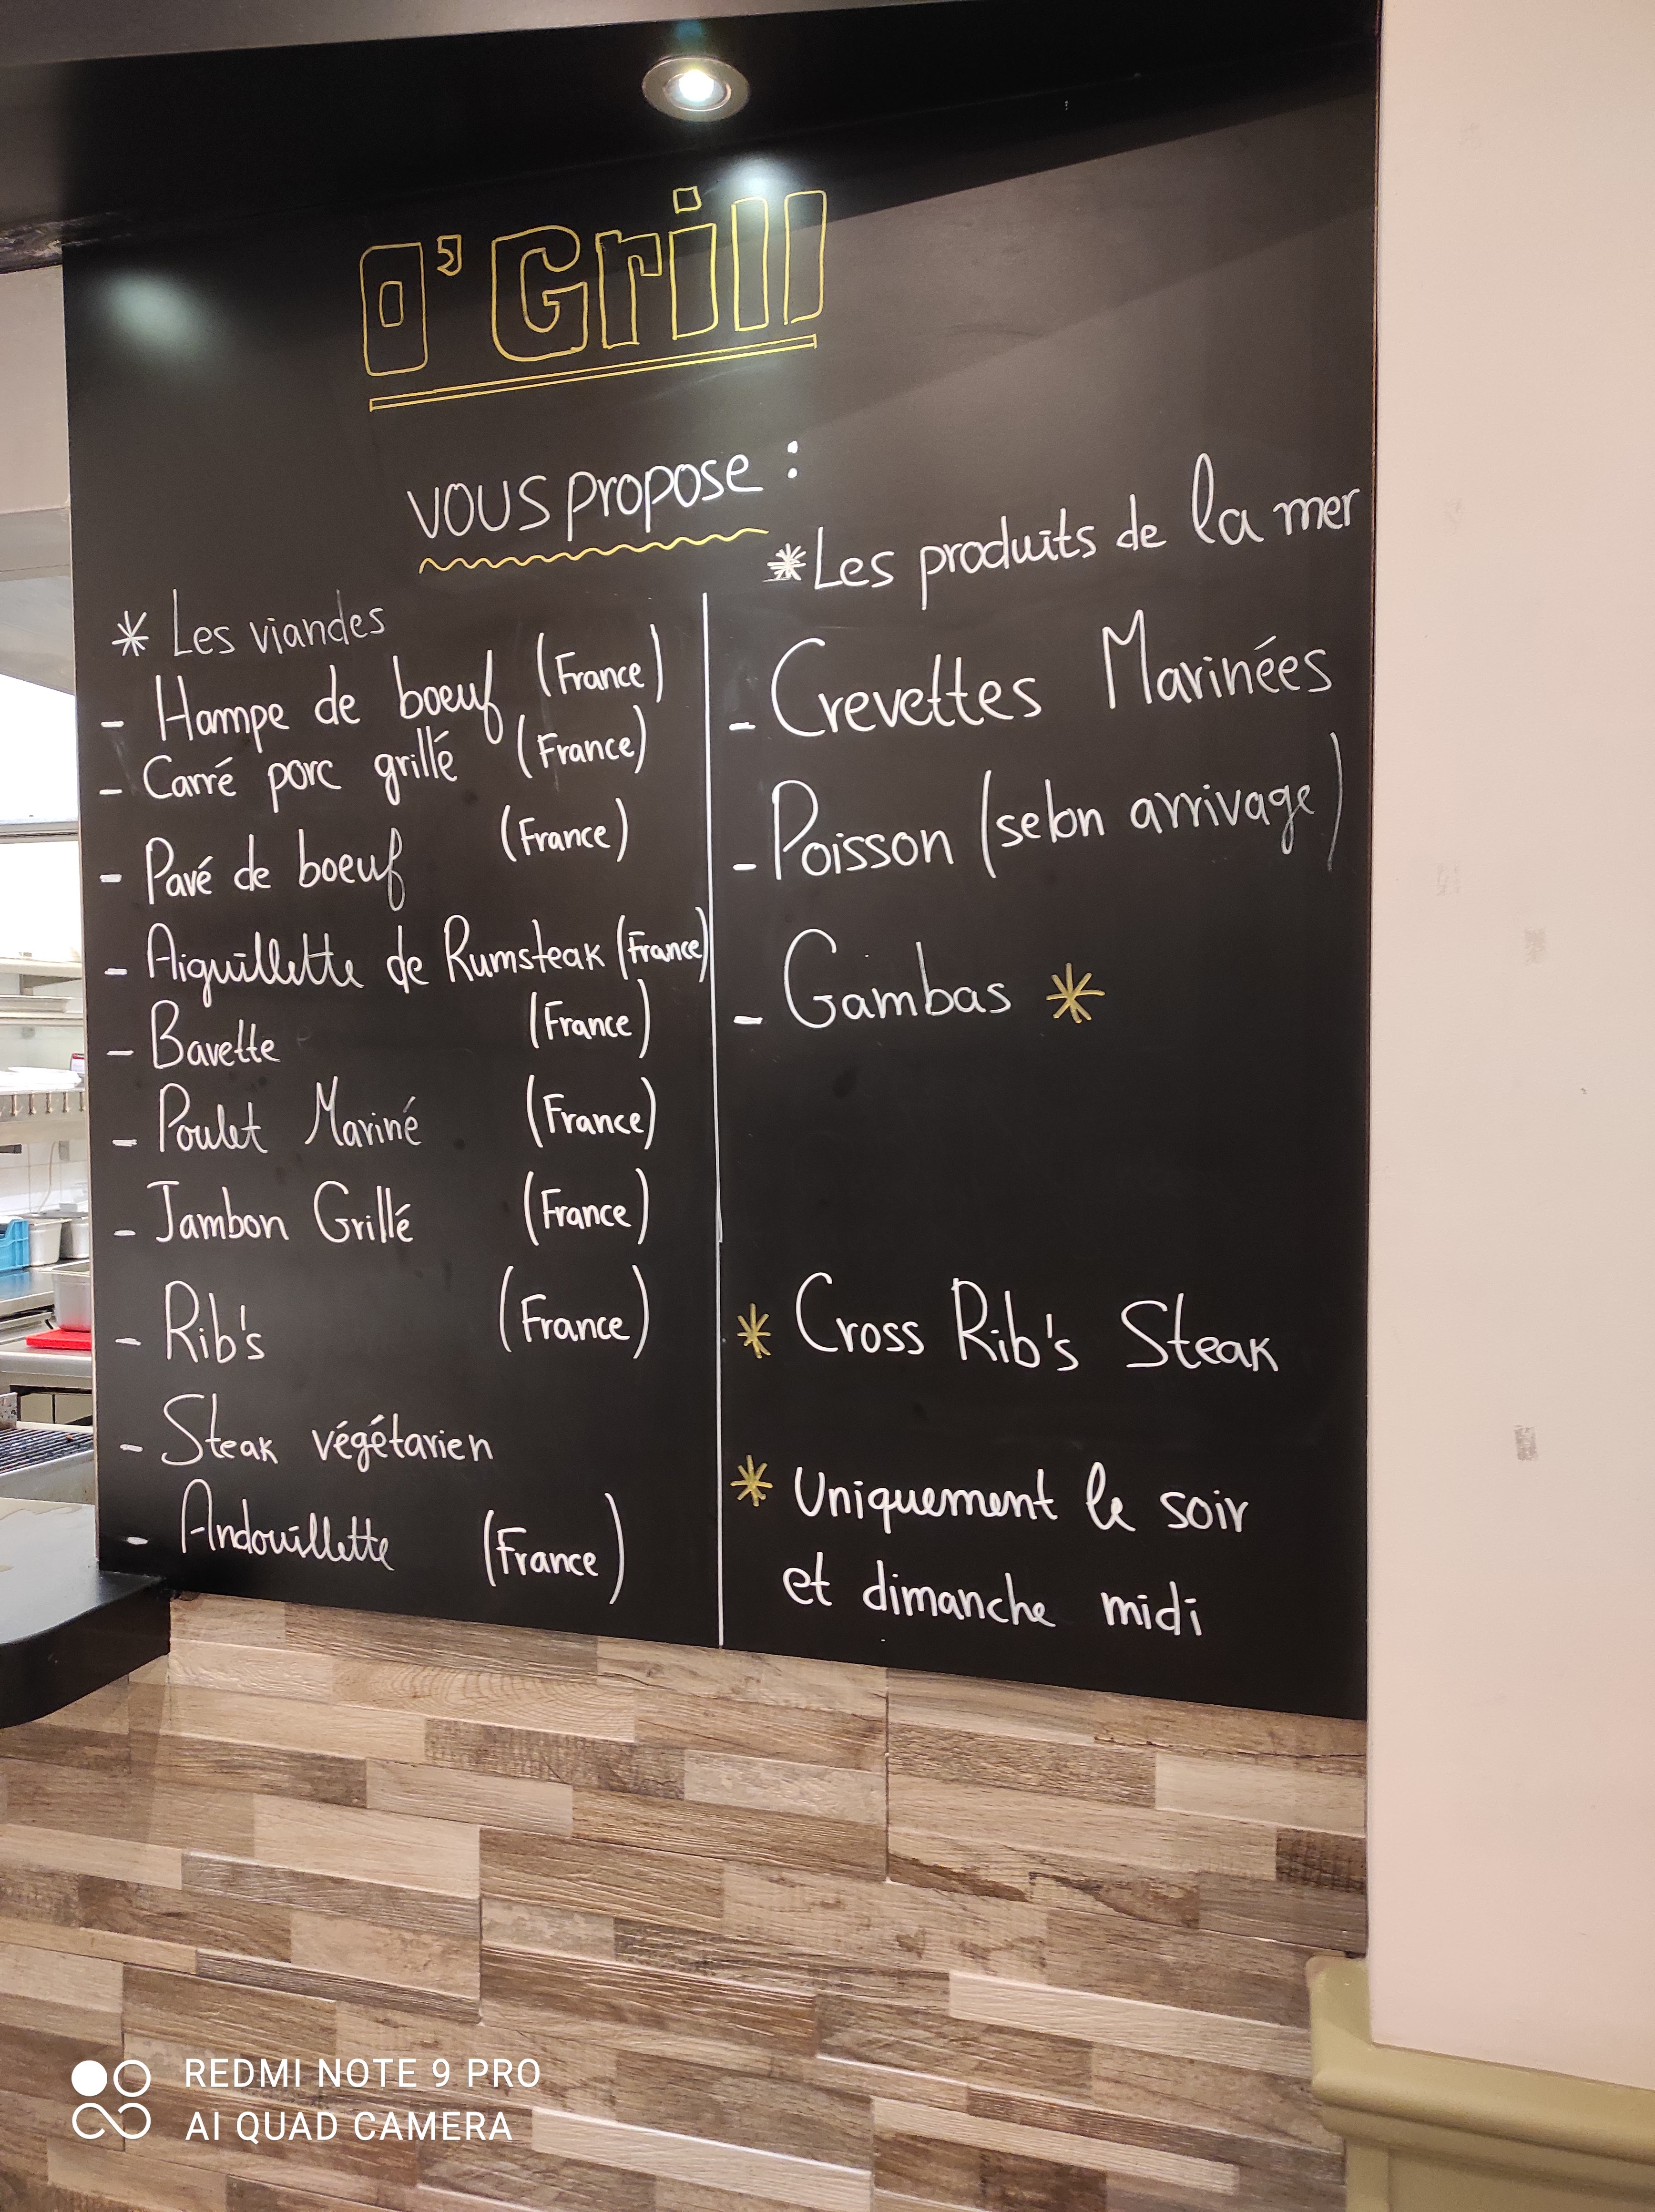 O'Grill
vous propose :
* Les viandes
- Hampe de boeuf (France)
- Carré porc grillé (France)
- Pavé de boeuf (France)
- Aiguillette de Rumsteak (France)
- Bavette (France)
- Poulet Mariné (France)
- Jambon Grillé (France)
- Rib's (France)
- Steak végétarien
- Andouillette (France)
* Les produits de la mer
- Crevettes Marinées
- Poisson (selon arrivage)
- Gambas *
* Cross Rib's Steak
* Uniquement le soir
et dimanche midi
REDMI NOTE 9 PRO
AI QUAD CAMERA